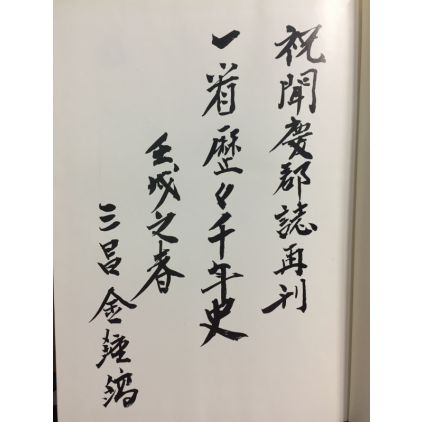 祝聞慶郡誌再刊
一省歷々千年史
壬戌之春
三呂 金